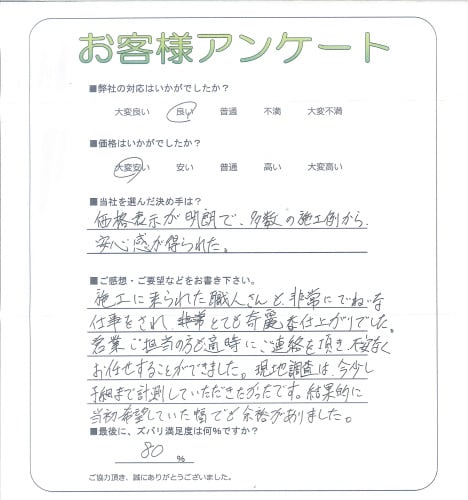 お客様アンケート
■弊社の対応はいかがでしたか？
大変良い 良い 普通 不満 大変不満
■価格はいかがでしたか？
大変安い 安い 普通 高い 大変高い
■当社を選んだ決め手は？
価格表示が明朗で、多数の施工例から、
安心感が得られた。
■ご感想・ご要望などをお書き下さい。
施工に来られた職人さんも、非常にていねいな
仕事をされ、とても奇麗な仕上がりでした。
営業ご担当の方も適時に、ご連絡を頂き、不安なく
お任せすることができました。現地調査は、今少し
詳細まで計測していただきたかったです。結果的に
当初希望していた幅でも余裕がありました。
■最後に、ズバリ満足度は何％ですか？
80 ％
ご協力頂き、誠にありがとうございました。